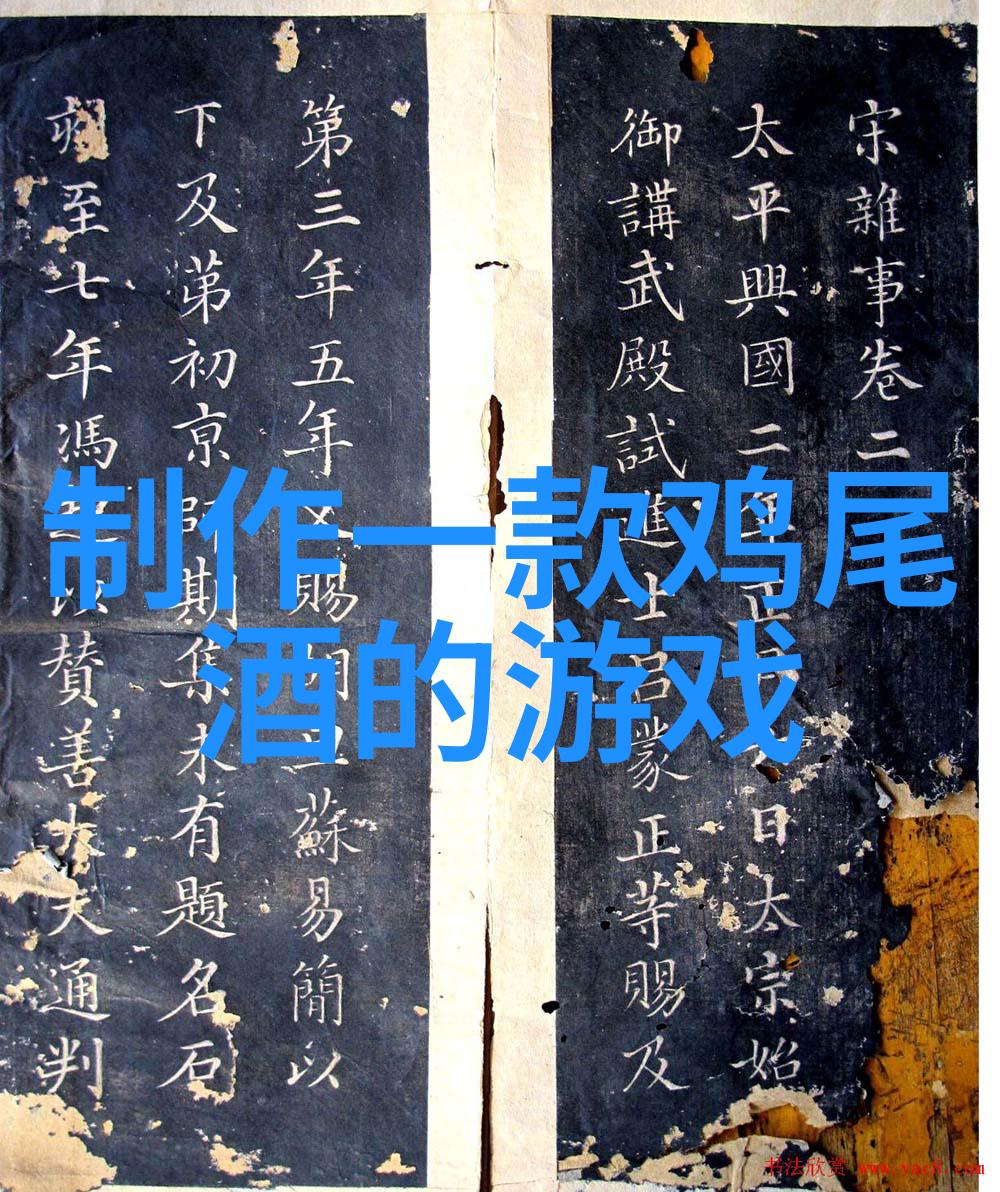 宋雜事卷二
太平興國二年正月日太宗始
御講武殿試進士呂蒙正等賜及
第三年五年又賜胡旦蘇易簡以
下及苐初京師期集未有題名石
刻至七年馮贊善大夫通判
制作一款鸡尾
酒的游戏
书法欣赏 www.yac8.com